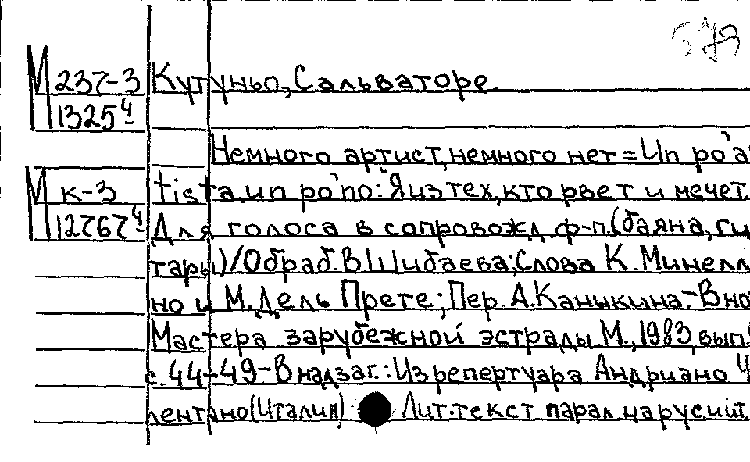 579
М 237-3 Кутуньо, Сальваторе.
М 1325⁴
Немного артист, немного нет = Un po'ar
М к-3 tista un po'no: Я из тех, кто рвет и мечет.
М 12767⁴ Для голоса в сопровожд. ф-п. (баяна, ги
тары)/Обраб. В. Шибаева; Слова К. Минелл
но и М. Дель Прете; Пер. А. Каныкина.- В но
Мастера зарубежной эстрады М., 1983, вып.
с. 44-49 - В надзаг.: Из репертуара Андриано Ч
лентано (Италия) Лит. текст парал. на рус. и ит.